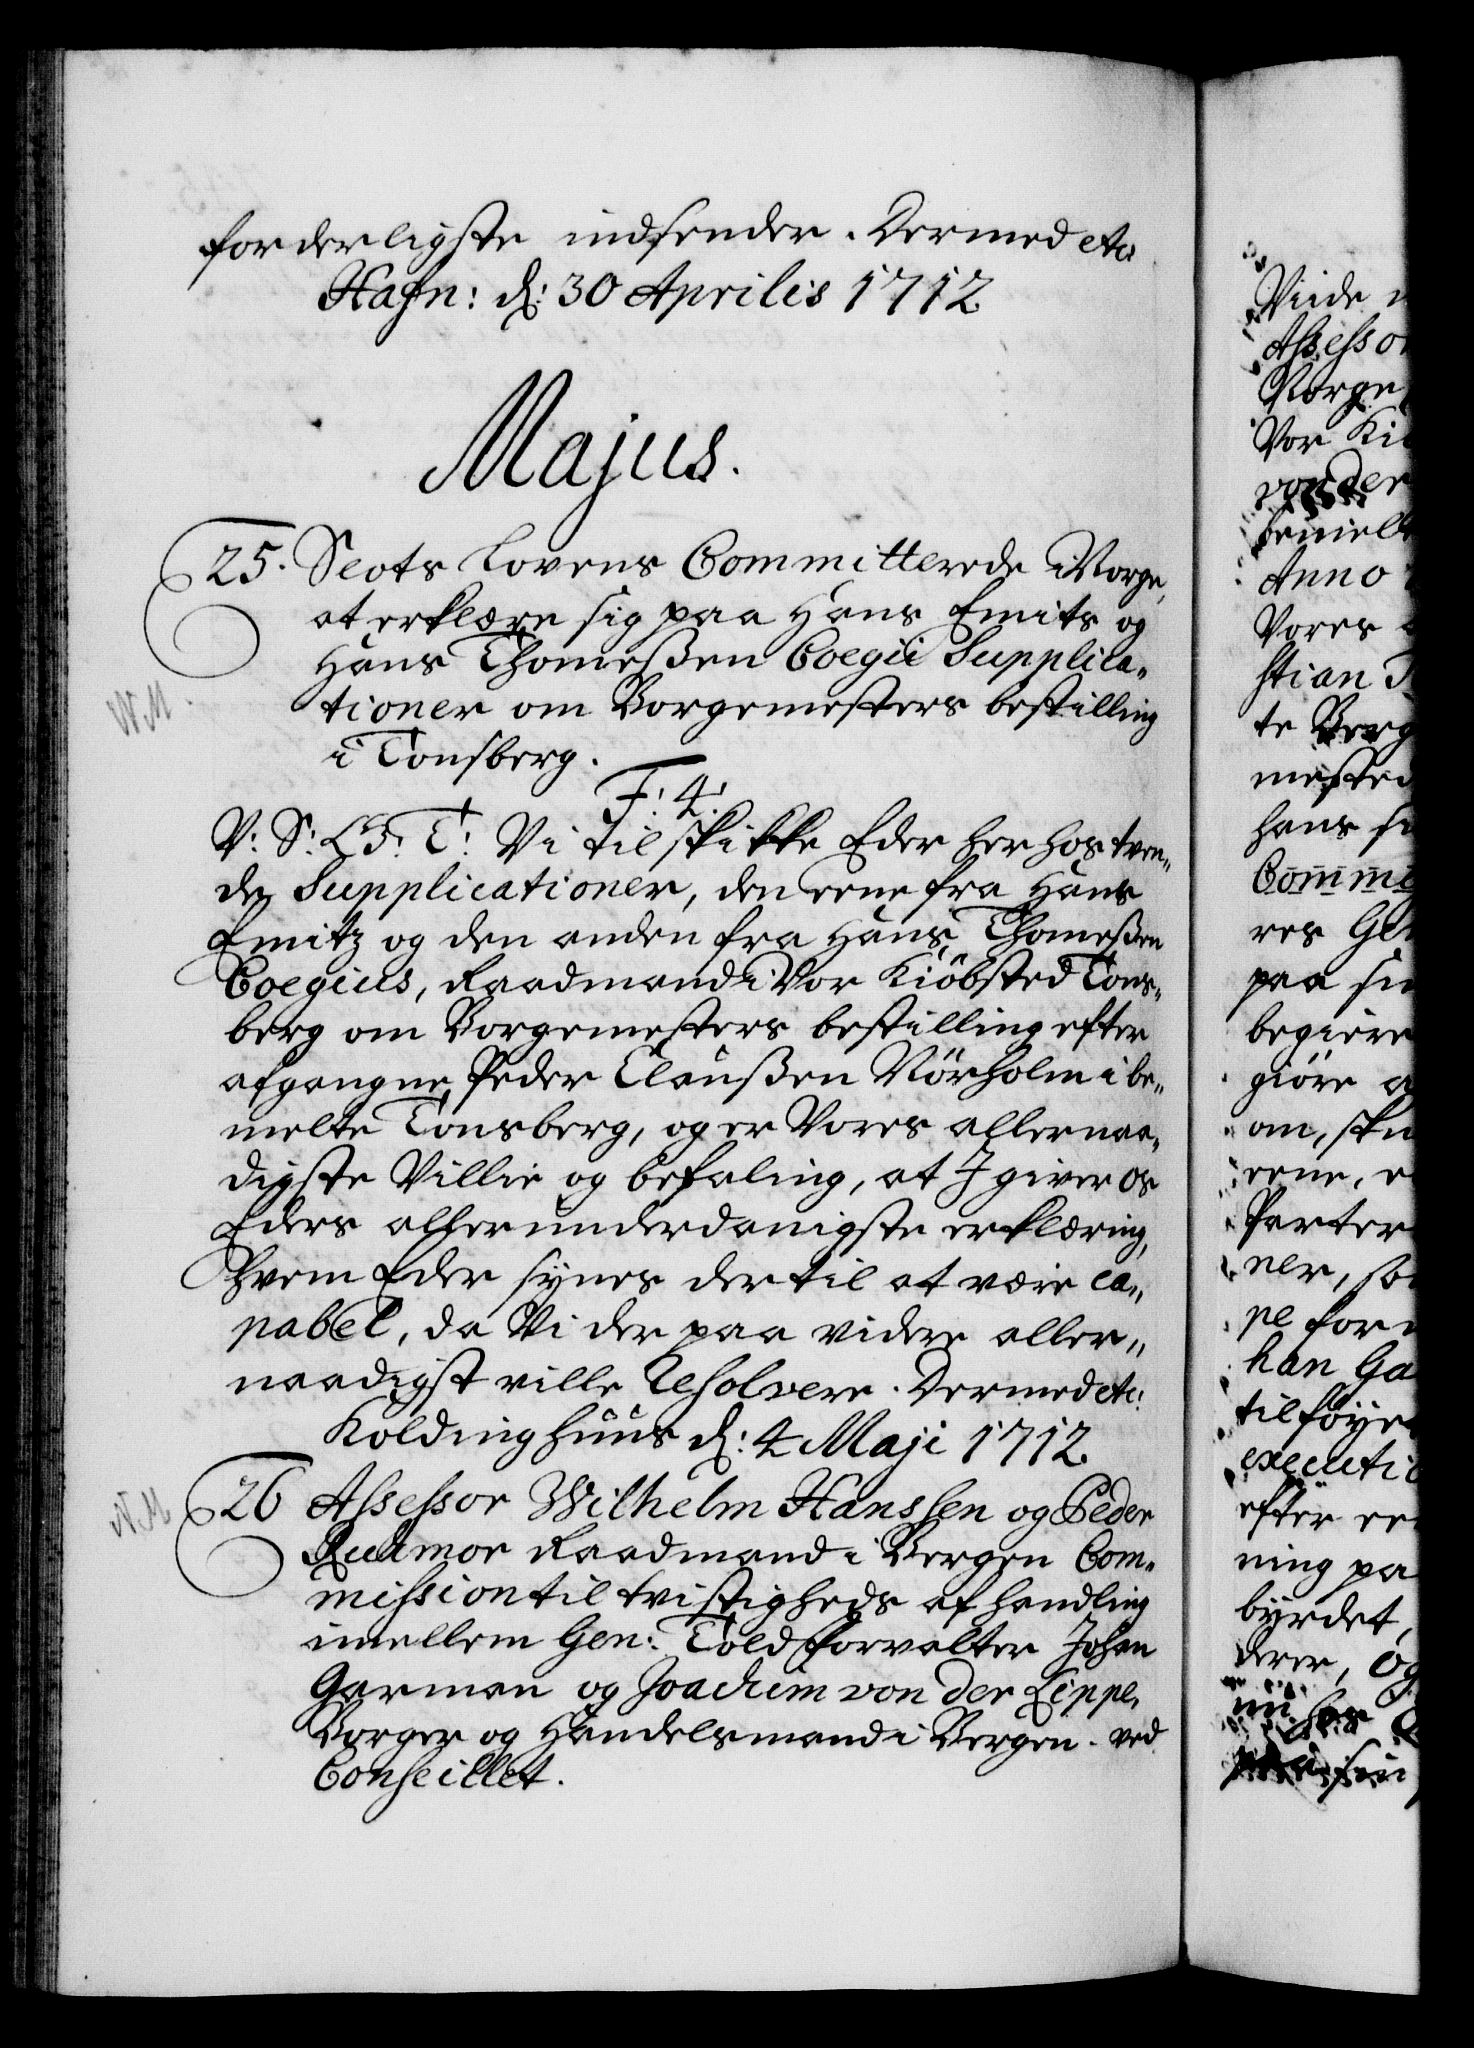 forderligste indsender. Dermed etc:
Hafn: d: 30 Aprilis 1712.
Majus.
25. Slots Lovens Committerede i Norge,
at erklære sig paa Hans Emits og
Hans Thomeßen Coegii Supplica-
tioner om Borgemesters bestilling
i Tonsberg.
F: 4:
V: S: G: T: Vi tilskikke Eder herhos tven-
de Supplicationer, den eene fra Hans
Emitz og den anden fra Hans Thomeßen
Coegius, Raadmand i Vor Kiöbsted Tons-
berg om Borgemesters bestilling efter
afgangne Peder Claußen Nörholm i be-
melte Tonsberg, og er Vores allernaa-
digste Villie og befaling, at I giver os
Eders allerunderdanigste erklæring,
hvem Eder synes dertil at være ca-
pabel, da Vi derpaa videre aller-
naadigst ville Resolvere. Dermed etc:
Koldinghuus d: 4 Maji 1712.
26 Assessor Wilhelm Hanssen og Peder
Raadmand i Bergen Com-
mission til tvistigheds afhandling
imellem Gen: Toldforvalter Johan
Garman og Joachim von der Lippe,
Borger og Handelsmand i Bergen. ved
Conseillet.
Viide
Assessor
Norge
Vor Ki
von der
bemelte
Anno
Vores
stian
te Berg
mested
hans
Commi
res Ge
paa
begiere
giöre a
om,
eene, e
Parter
ner, so
pe for
han Ga
tilföye
executi
efter ee
ning pa
byrdet,
derer, og